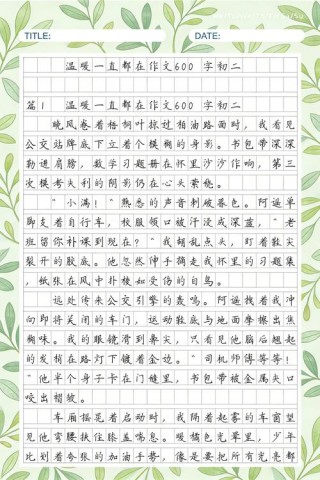 TITLE:
DATE:
温暖一直都在作文600 字初二
篇1 温暖一直都在作文600 字初二
晚风卷着梧桐叶掠过柏油路面时，我看见
公交站牌底下立着个模糊的身影。书包带深深
勒进肩膀，数学习题册在怀里沙沙作响，第三
次模考失利的阴影仍在心头萦绕。
"小满！"熟悉的声音刺破暮色。阿遥单
脚支着自行车，校服领口被汗浸成深蓝，"老
班留你补课到现在？"我胡乱点头，盯着鞋尖
裂开的胶底。他忽然伸手摘走我怀里的习题集
，纸张在风中扑棱如受伤的白鸟。
远处传来公交引擎的轰鸣。阿遥拽着我冲
向即将关闭的车门，运动鞋底与地面摩擦出焦
糊味。我的眼镜滑到鼻尖，只看见他脑后翘起
的发梢在路灯下镀着金边。"司机师傅等等！
"他半个身子卡在门缝里，书包带被金属夹口
咬出褶皱。
车厢摇晃着启动时，我隔着起雾的车窗望
见他弯腰扶住膝盖喘息。暖橘色光晕里，少年
比划着夸张的加油手势，像是要把所有光亮都